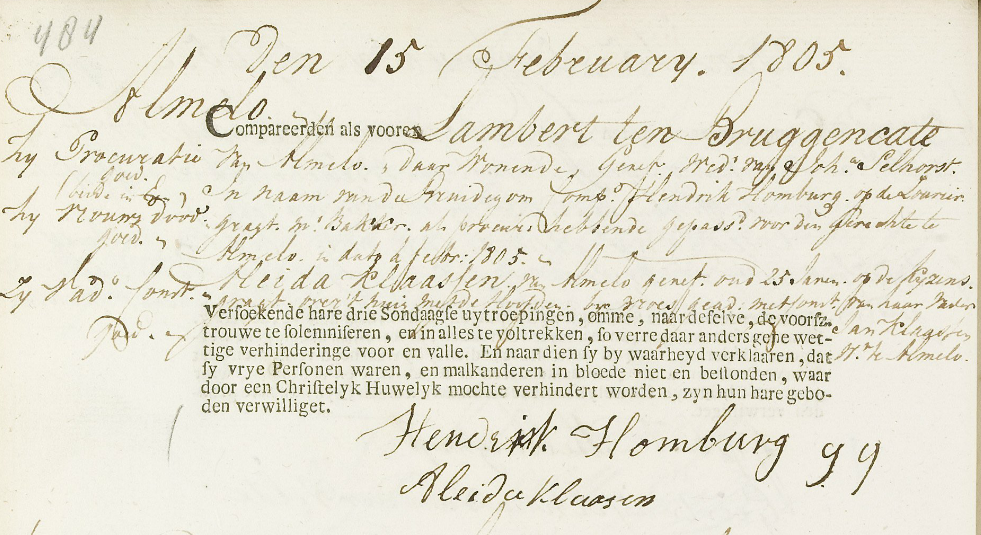 484
Den 15 February. 1805.
Almelo.
Compareerden als vooren Lambert ten Bruggencate
hy Procuratie van Almelo, daar Wonende, Geref. Wed.r van Joh.a Selhorst.
goed. In Naam van de Bruidegom Comp.t Hendrik Homburg. op de Lauwier
hy dood graagt. bakker. als procur: hebbende gepass.t voor den Gerechte te
goed. Almelo. in dato febr: 1805.
Aleida Klaassen, van Almelo geref. oud 25 Jaren. op de
Zy Vad.s Const. graagt. over 't huis met de Hoofden. moed. dead: met const. van haar Vader
goed. Jan Klaasen
Versoekende hare drie Sondaagse uytroepingen, omme, naar deselve, de voorsz.
trouwe te solemniseren, en in alles te voltrekken, so verre daar anders gene wet-
te Almelo.
tige verhinderinge voor en valle. En naar dien sy by waarheyd verklaaren, dat
sy vrye Personen waren, en malkanderen in bloede niet en bestonden, waar
door een Christelyk Huwelyk mochte verhindert worden, zyn hun hare gebo-
den verwilliget.
Hendrik Homburg 99
Aleida Klaasen